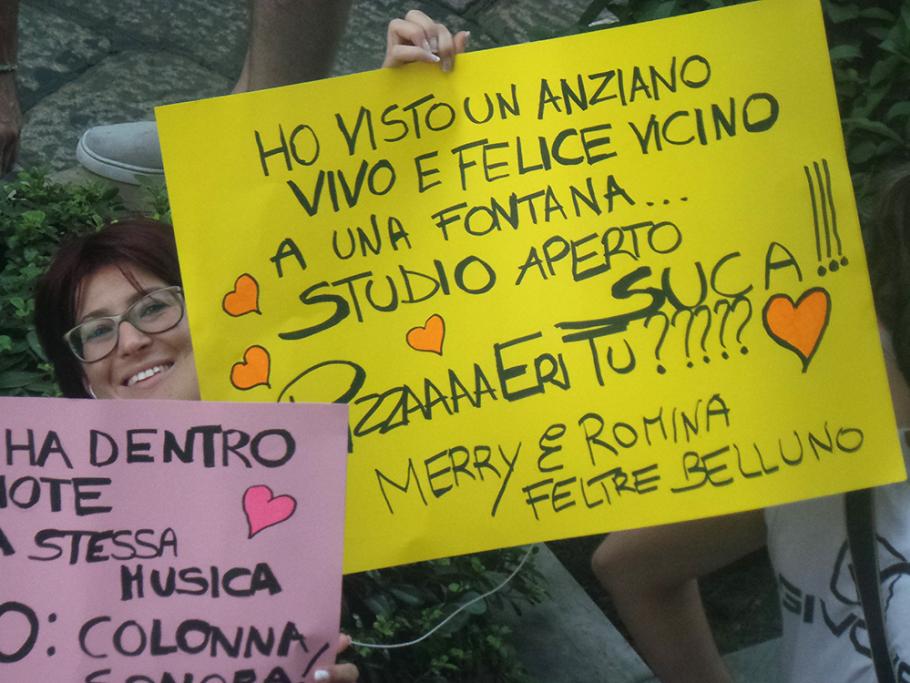 HO VISTO UN ANZIANO
VIVO E FELICE VICINO
A UNA FONTANA...
STUDIO APERTO
SUCA!!!
PIZZAAAA ERI TU?????
MERRY E ROMINA
FELTRE BELLUNO
HA DENTRO
STESSA
MUSICA
COLONNA
SONORA!